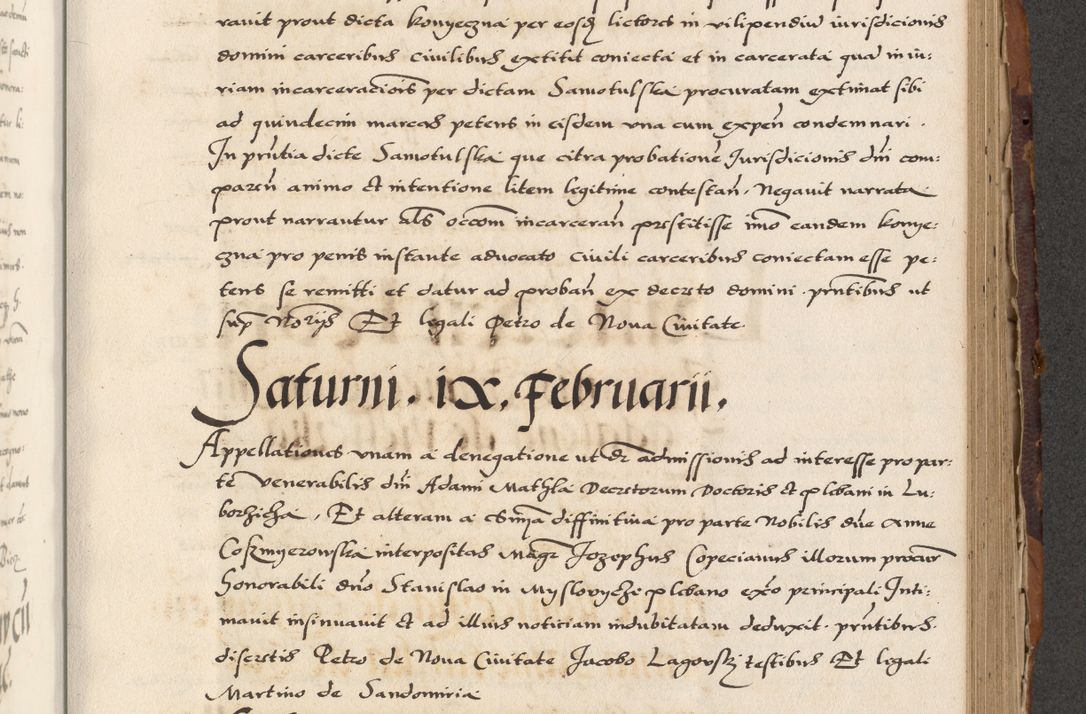 ravit prout dicta Konyeczna per eosdem lictores in vilipendium iurisdicionis
domini carceribus civilibus extitit coniecta et in carcerata quam iniu:
riam incarceracionis per dictam Samotulska procuratam extimat sibi
ad quindecim marcas petens in eisdem una cum expen condemnari.
In prntia dicte Samotulska que citra probationem Jurisdicionis dni com:
paren animo et intentione litem legitime contestan. Negavit narrata
prout narrantur als occom incarceran prestitisse imo eandem Konye:
czna pro penis instante advocato civili carceribus coniectam esse pe:
tens se remitti et datur ad proban ex decreto domini. prntibus ut
sup Norijs Et legali Petro de Nova Civitate.
Saturni. ix. Februarii.
Appellationes unam a denegatione ut dr admissionis ad interesse pro par:
te Venerabilis dni Adami Mathla Decretorum Doctoris et plebani in Lu:
borzicza, Et alteram a diffinitiva pro parte Nobilis dne Anne
Coszmyerowska interpositas Magr Jozephus Copecianus illorum procur
honorabili dno Stanislao in Myslovycze plebano exco principali Inti:
mavit insinuavit et ad illius noticiam indubitatam deduxit. prntibus.
discretis Petro de Nova Civitate Jacobo Lagovsky testibus Et legali
Martino de Sandomiria